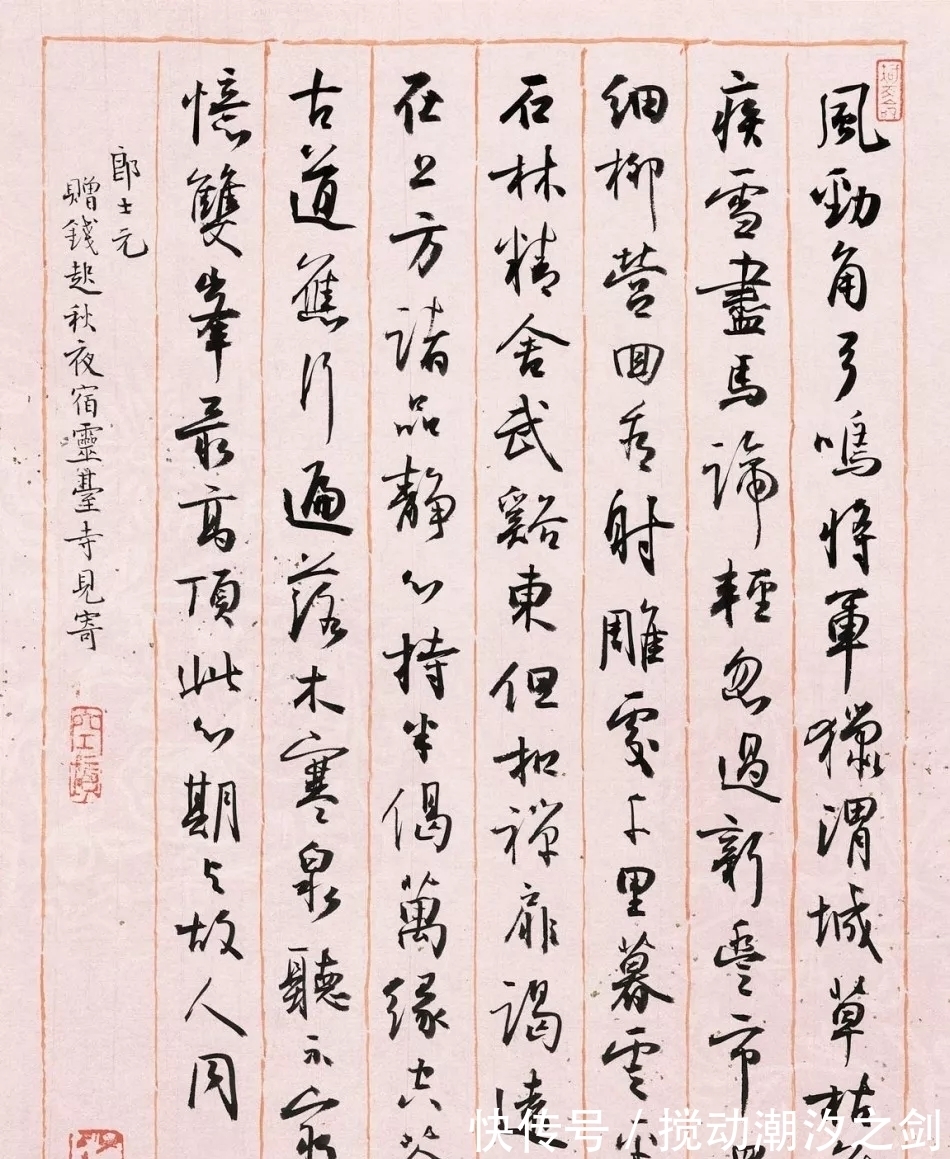 風勁角弓鳴將軍獵渭城草枯
疾雪盡馬蹄輕忽過新豐市
細柳營回看射雕處千里暮雲
石林精舍武谿東但扣禪扉謁遠
在上方諸品靜心持半偈萬緣空
古道應行遍落木寒泉聽不窮
憶雙峯最高頂此心期與故人同
郎士元
贈錢起秋夜宿靈臺寺見寄
快传号 / 搅动潮汐之剑